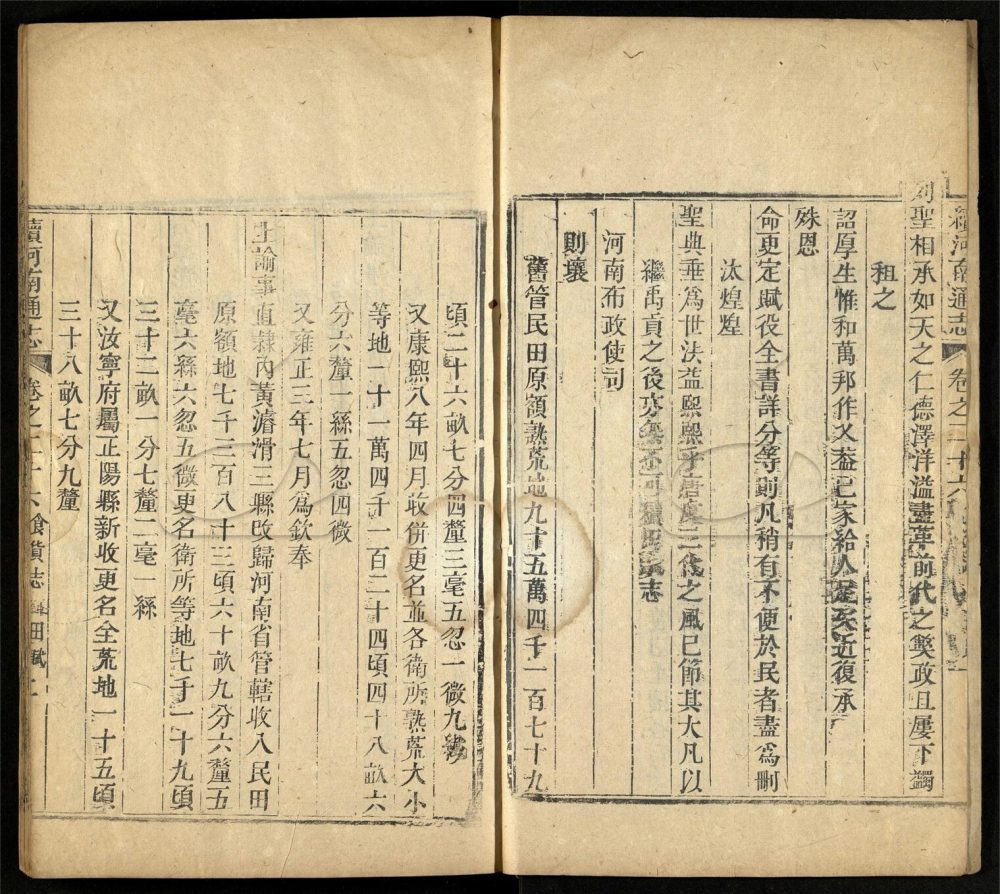 續河南通志 卷之二十六
列聖相承如天之仁德澤洋溢盡革前代之獘政且屢下蠲
租之
詔厚生惟和萬邦作乂葢已家給人足矣近復承
殊恩
命更定賦役全書詳分等則凡稍有不便於民者盡爲刪
汰煌煌
聖典垂爲世法益熙熙乎唐虞三代之風已節其大凡以
繼禹貢之後亦無不可獨志
河南布政使司
則壤
舊管民田原額熟荒地九十五萬四千一百七十九
頃二十六畝七分四釐三毫五忽一微九纎
又康熙八年四月收併更名並各衛所熟荒大小
等地一十一萬四千一百二十四頃四十八畝六
分六釐一絲五忽四微
又雍正三年七月爲欽奉
上諭事直隸內黃濬滑三縣改歸河南省管轄收入民田
原額地七千三百八十三頃六十畝九分六釐五
毫六絲六忽五微更名衛所等地七千一十九頃
三十二畝一分七釐二毫一絲
又汝寧府屬正陽縣新收更名全荒地一十五頃
三十八畝七分九釐
續河南通志 卷之二十六 食貨志 田賦 二